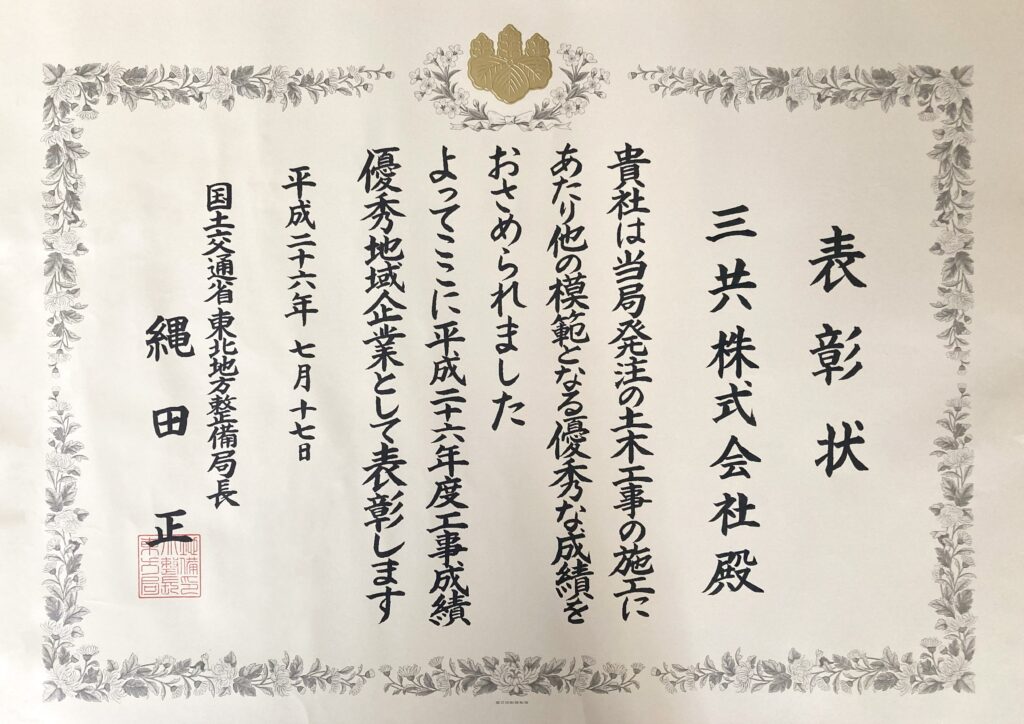 表彰状
三共株式会社殿
貴社は当局発注の土木工事の施工に
あたり他の模範となる優秀な成績を
おさめられました
よってここに平成二十六年度工事成績
優秀地域企業として表彰します
平成二十六年七月十七日
国土交通省東北地方整備局長
縄田正